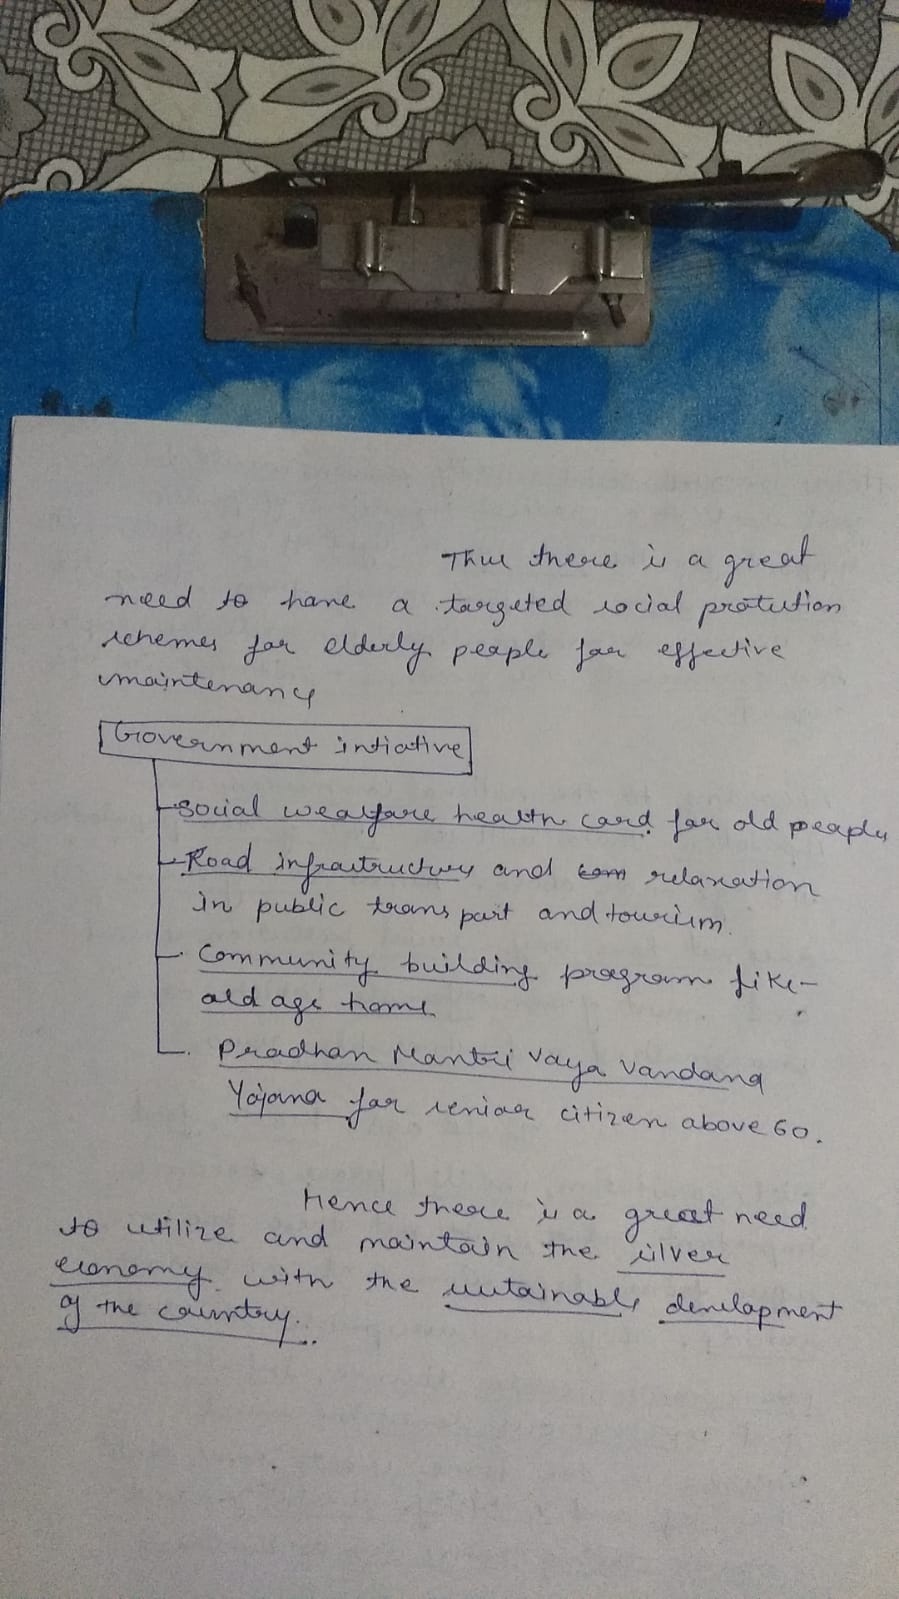 Thus there is a great
need to have a targeted social protection
schemes for elderly people for effective
maintenancy
Government intiative
social wealfare health card for old people
Road infrastructure and com relaxation
in public transport and tourism.
Community building program like-
old age home
Pradhan Mantri Vaya Vandana
Yojana for senior citizen above 60.
Hence there is a great need
to utilize and maintain the silver
economy with the sustainable development
of the country.